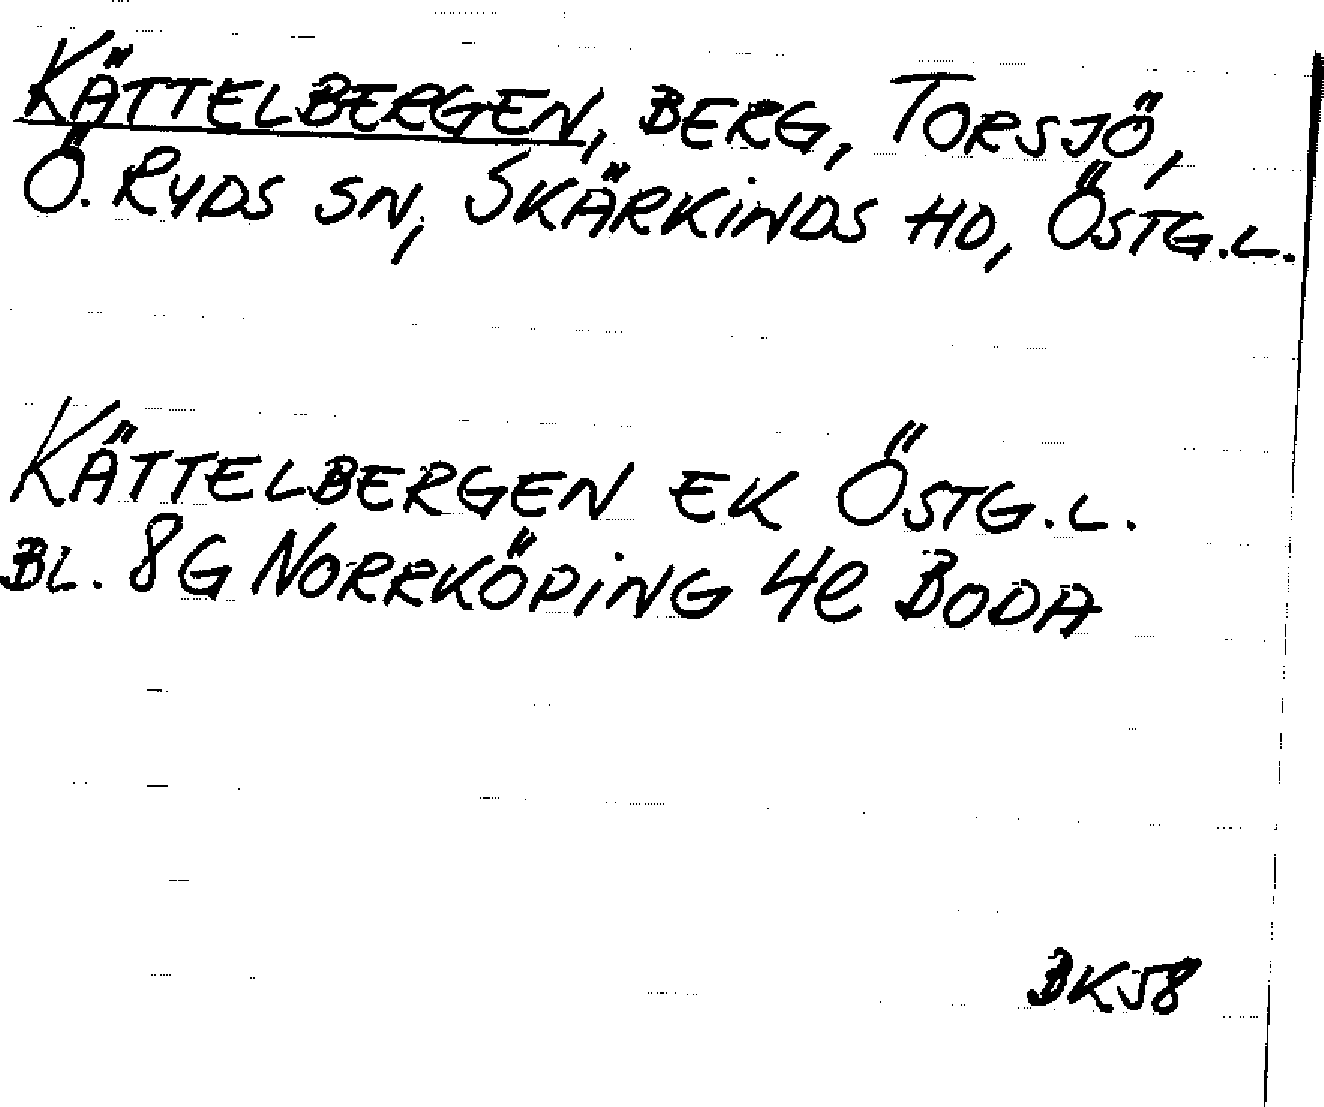 KÄTTELBERGEN, BERG, TORSJÖ,
Ö. RYDS SN, SKÄRKINDS HD, ÖSTG.L.
KÄTTELBERGEN EK ÖSTG.L.
BL. 8G NORRKÖPING 4e BODA
BK58